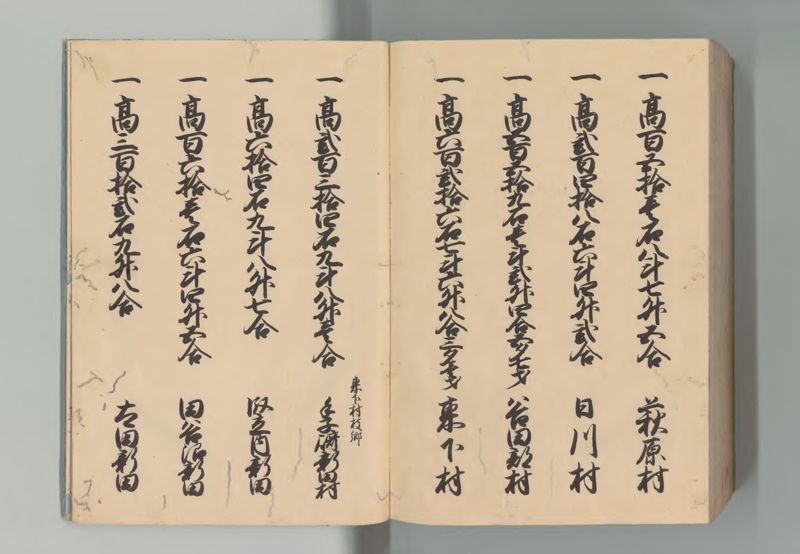 一 高百五拾壱石八斗七升五合 萩原村
一 高弐百四拾八石六斗四升弐合 日川村
一 高百五拾九石壱斗弐升四合 谷田部村
一 高六百弐拾六石七斗六升八合三夕壱才 東下村
東下村枝郷
一 高弐百三拾四石九斗八升壱合 新田村
一 高六拾四石九斗八升七合 新田
一 高百六拾壱石六斗四升五合 田谷沼新田
一 高三百拾弐石九升八合 太田新田